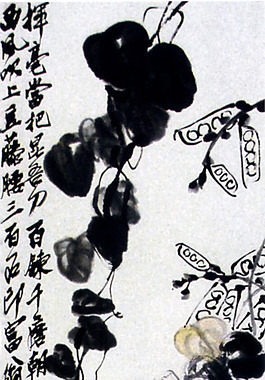 揮毫當把昆吾刀百鍊千磨朝
西風吹上豆藤腰三百石印富翁